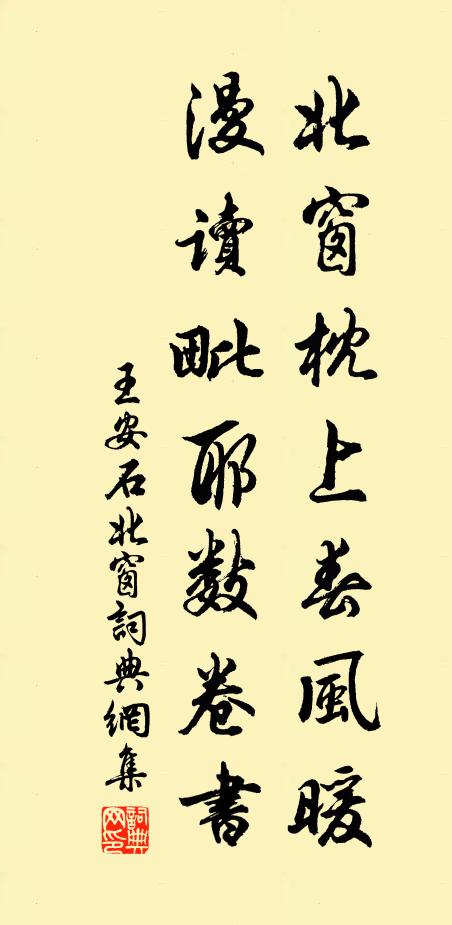 北窗枕上春風暖
漫讀毗耶數卷書
王安石北窗詞典網集
詞典网印